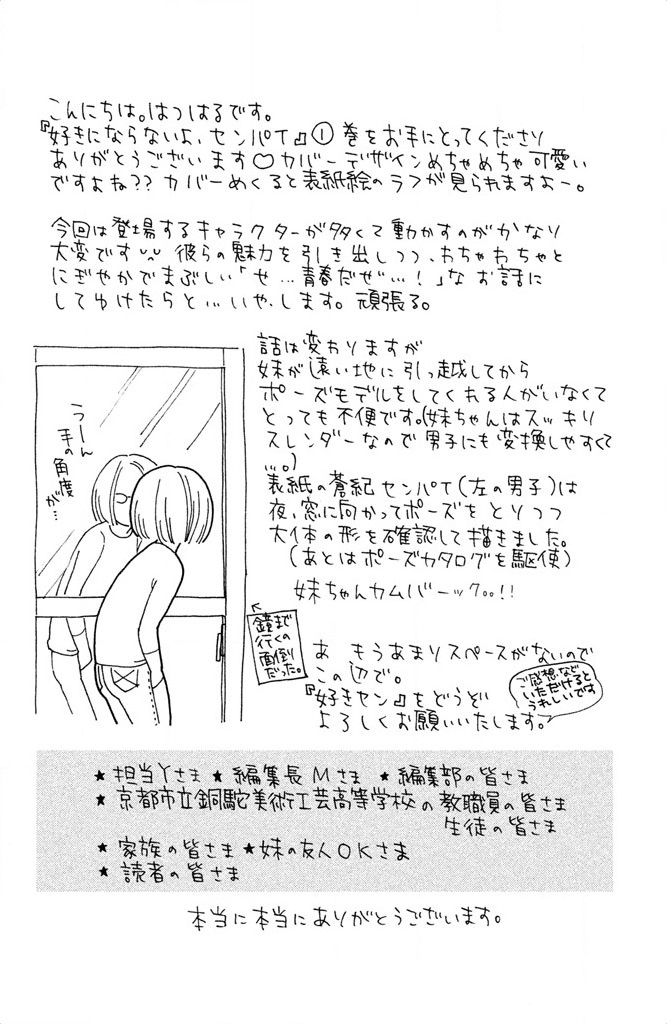 こんにちは。はつはるです。
『好きにならないよ、センパイ』①巻をお手にとってくださり
ありがとうございます♡カバーデザインめちゃめちゃ可愛い
ですよね??カバーめくると表紙絵のラフが見られますよー。
今回は登場するキャラクターが多くて動かすのがかなり
大変です 彼らの魅力を引き出しつつ、わちゃわちゃと
にぎやかでまぶしい「せ…青春だぜ…!」なお話に
してゆけたらと…いや、します。頑張る。
話は変わりますが
妹が遠い地に引っ越してから
ポーズモデルをしてくれる人がいなくて
とっても不便です。(妹ちゃんはスッキリ
スレンダーなので男子にも変換しやすくて
…。)
表紙の蒼紀センパイ(左の男子)は
夜、窓に向かってポーズをとりつつ
大体の形を確認して描きました。
(あとはポーズカタログを駆使)
妹ちゃんカムバーック…!!
うーん
手の
角度
が…
↖
鏡まで
行くの
面倒
だった。
あ もうあまりスペースがないので
この辺で。
『好きセン』をどうぞ
よろしくお願いいたします。
ご感想など
いただけると
うれしいです
★担当Yさま ★編集長Mさま ★編集部の皆さま
★京都市立銅駝美術工芸高等学校の教職員の皆さま
生徒の皆さま
★家族の皆さま ★妹の友人OKさま
★読者の皆さま
本当に本当にありがとうございます。